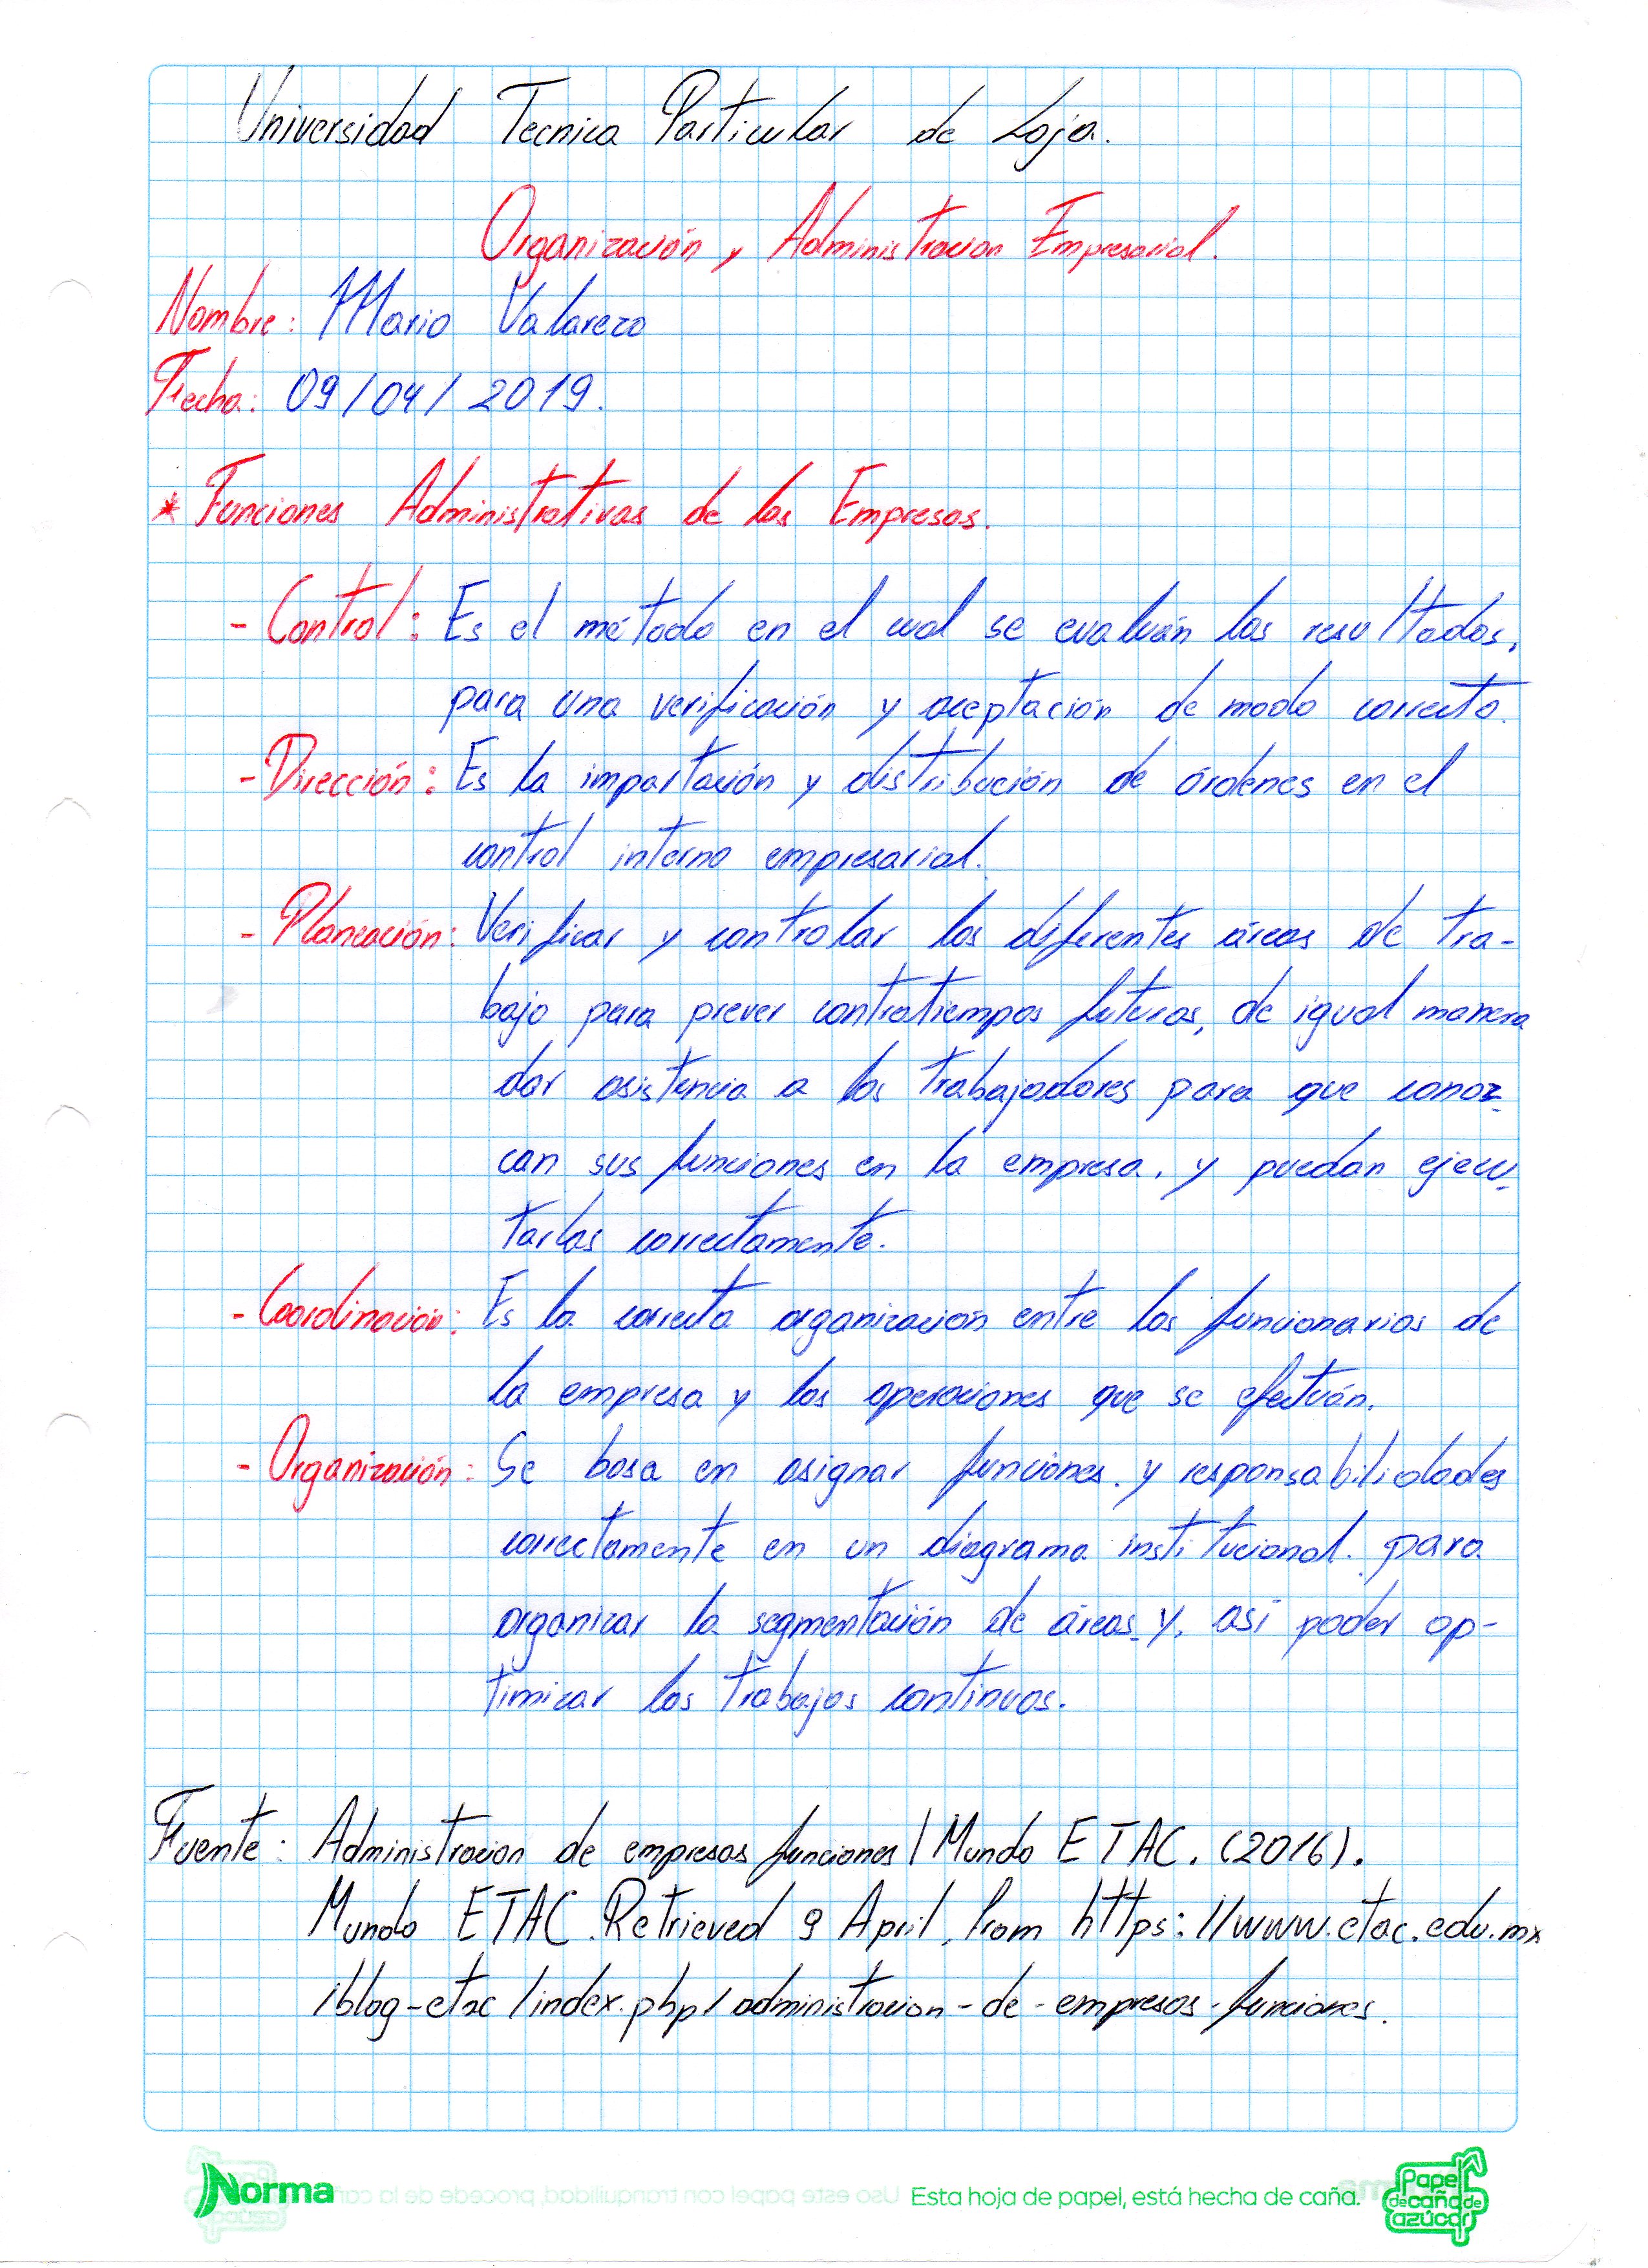 Universidad Tecnica Particular de Loja.
Organización y Administracion Empresarial.
Nombre: Mario Valarezo
Fecha: 09/04/2019.
* Funciones Administrativas de las Empresas.
- Control: Es el método en el cual se evalúan los resultados,
para una verificación y aceptación de modo correcto.
- Dirección: Es la impartación y distribución de órdenes en el
control interno empresarial.
- Planeación: Verificar y controlar las diferentes áreas de tra-
bajo para prever contratiempos futuros, de igual manera
dar asistencia a los trabajadores para que conoz-
can sus funciones en la empresa, y puedan ejecu-
tarlas correctamente.
- Coordinación: Es la correcta organización entre los funcionarios de
la empresa y las operaciones que se efectuán.
- Organización: Se basa en asignar funciones, y responsabilidades
correctamente en un diagrama institucional. para
organizar la segmentación de áreas y, así poder op-
timizar los trabajos continuos.
Fuente: Administracion de empresas funciones | Mundo ETAC. (2016).
Mundo ETAC. Retrieved 9 April, from https://www.etac.edu.mx
/blog-etac/index.php/administracion-de-empresas-funciones.
Norma
Uso este papel con tranquilidad, procede de la
Esta hoja de papel, está hecha de caña.
Papel
de caña de
azúcar